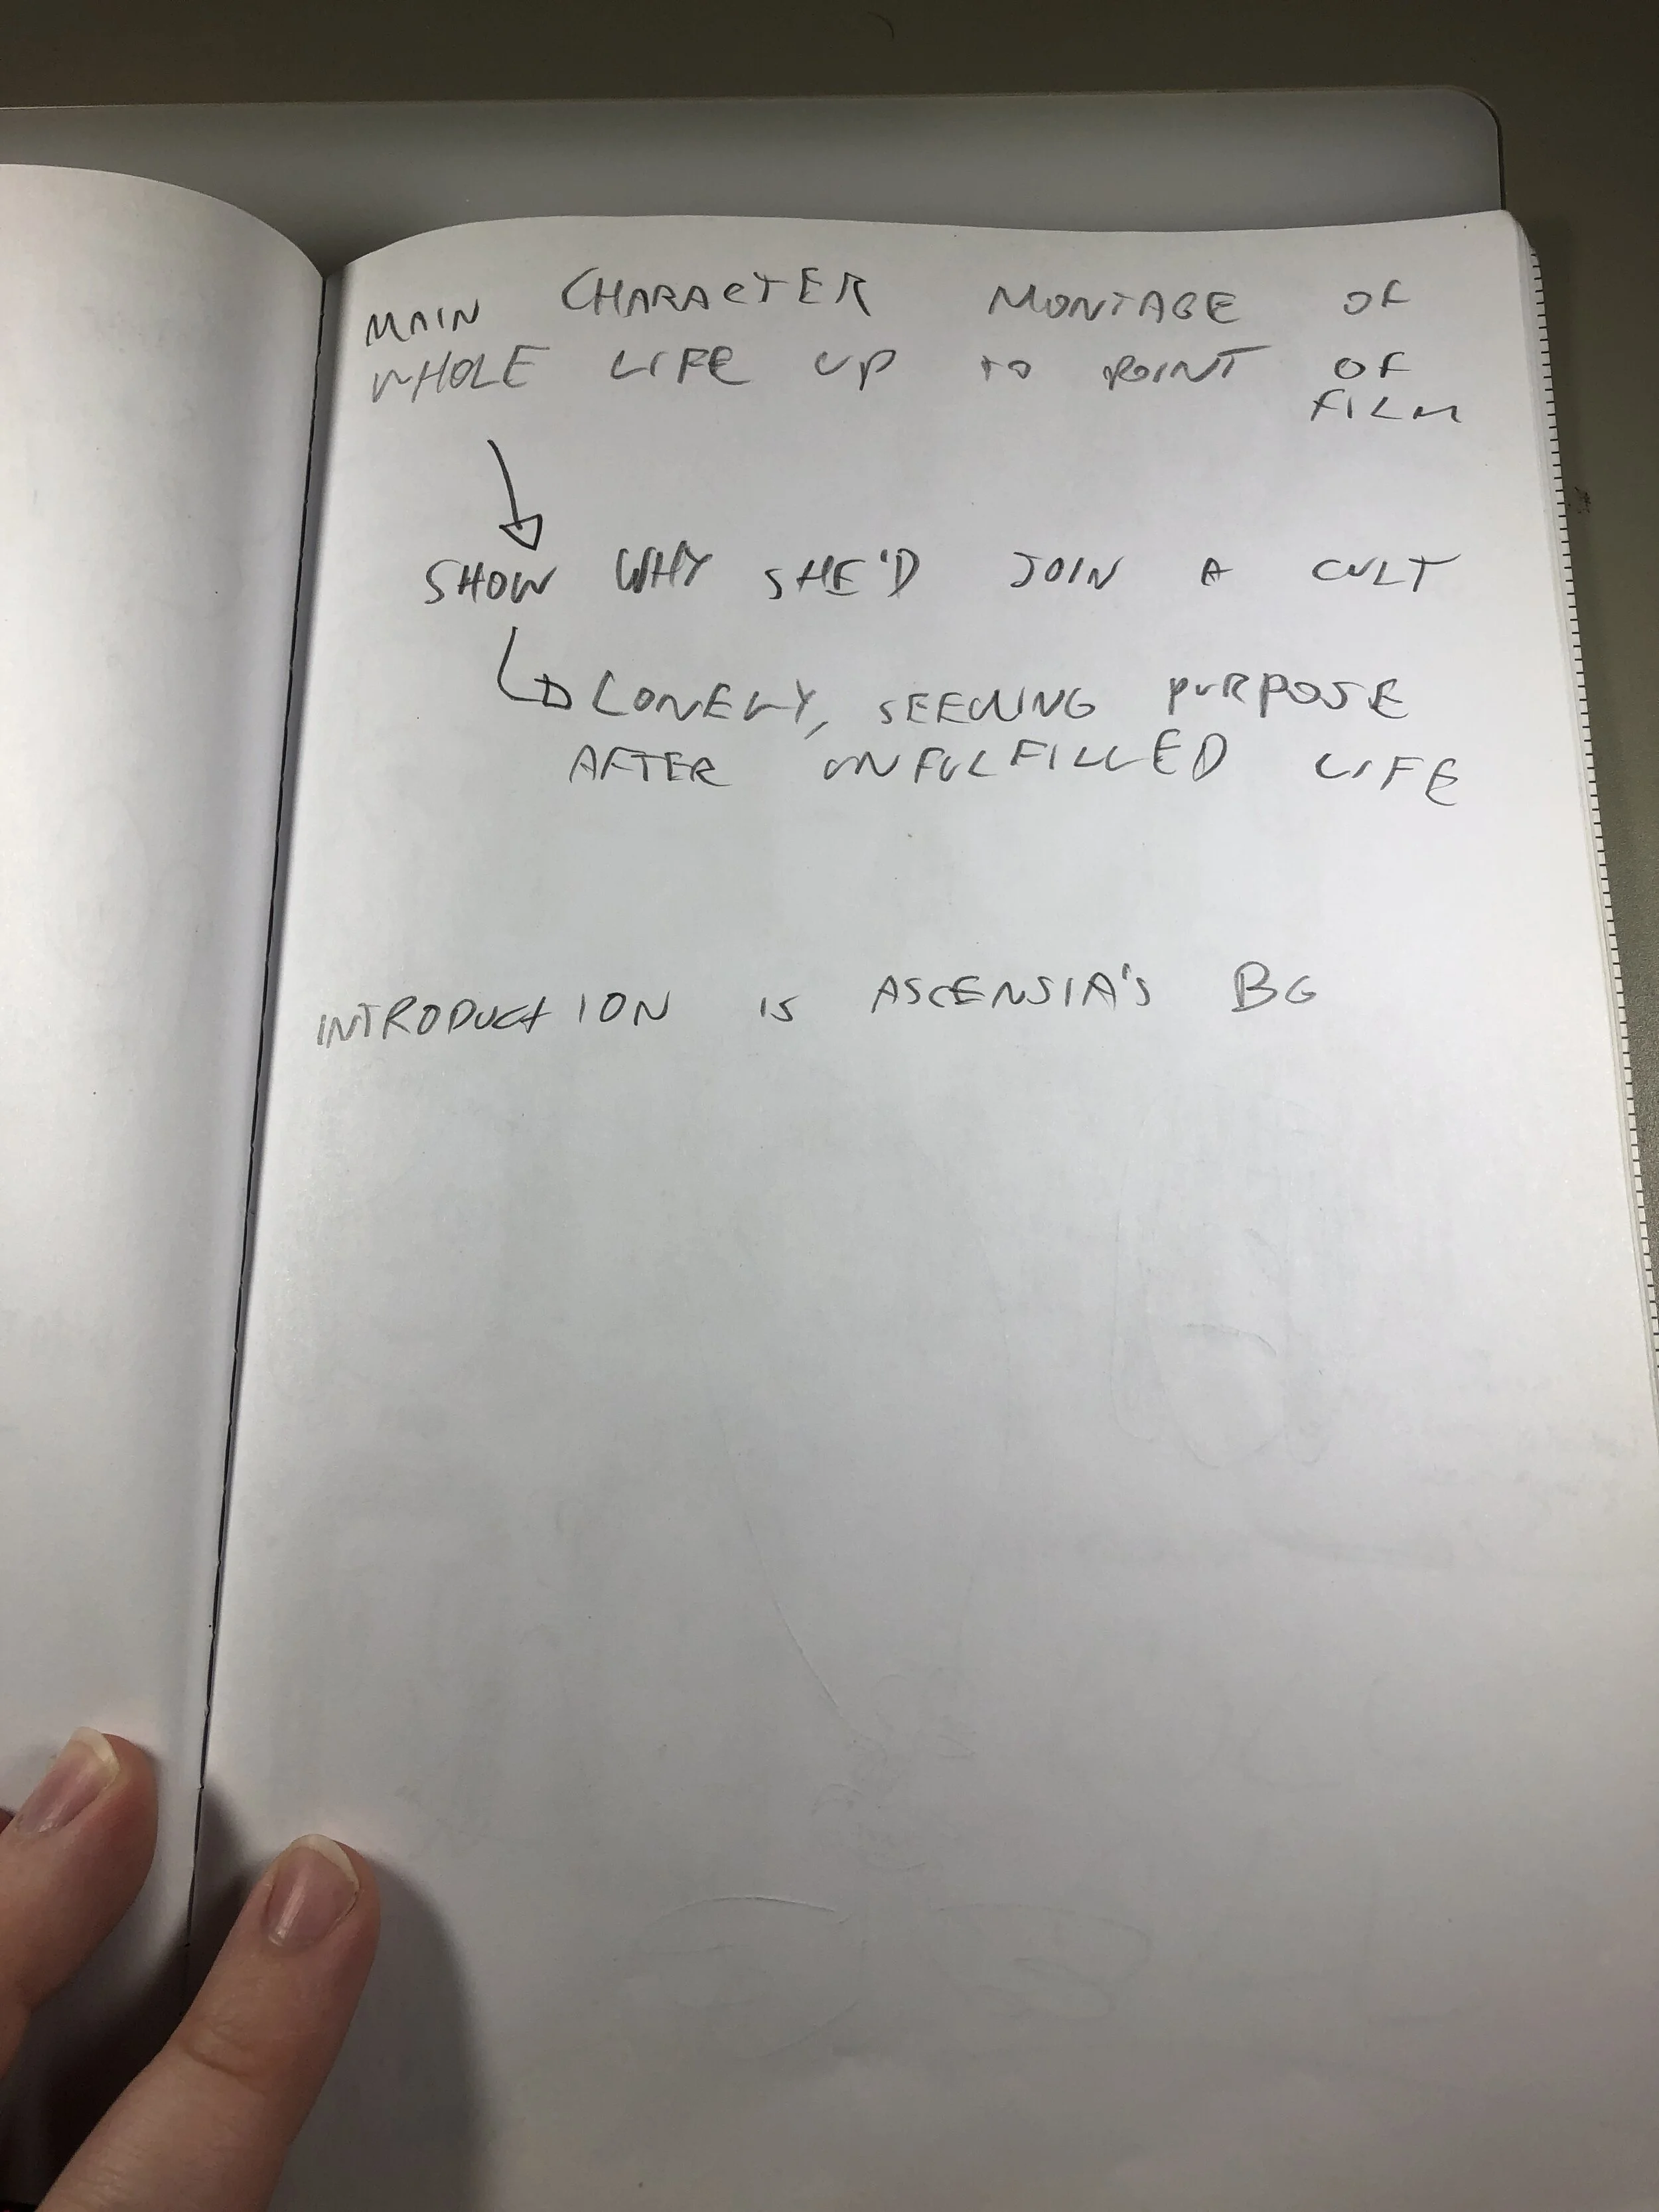 MAIN CHARACTER MONTAGE OF
WHOLE LIFE UP TO POINT OF
FILM
SHOW WHY SHE'D JOIN A CULT
LONELY, SEEKING PURPOSE
AFTER UNFULFILLED LIFE
INTRODUCTION IS ASCENSIA'S BG